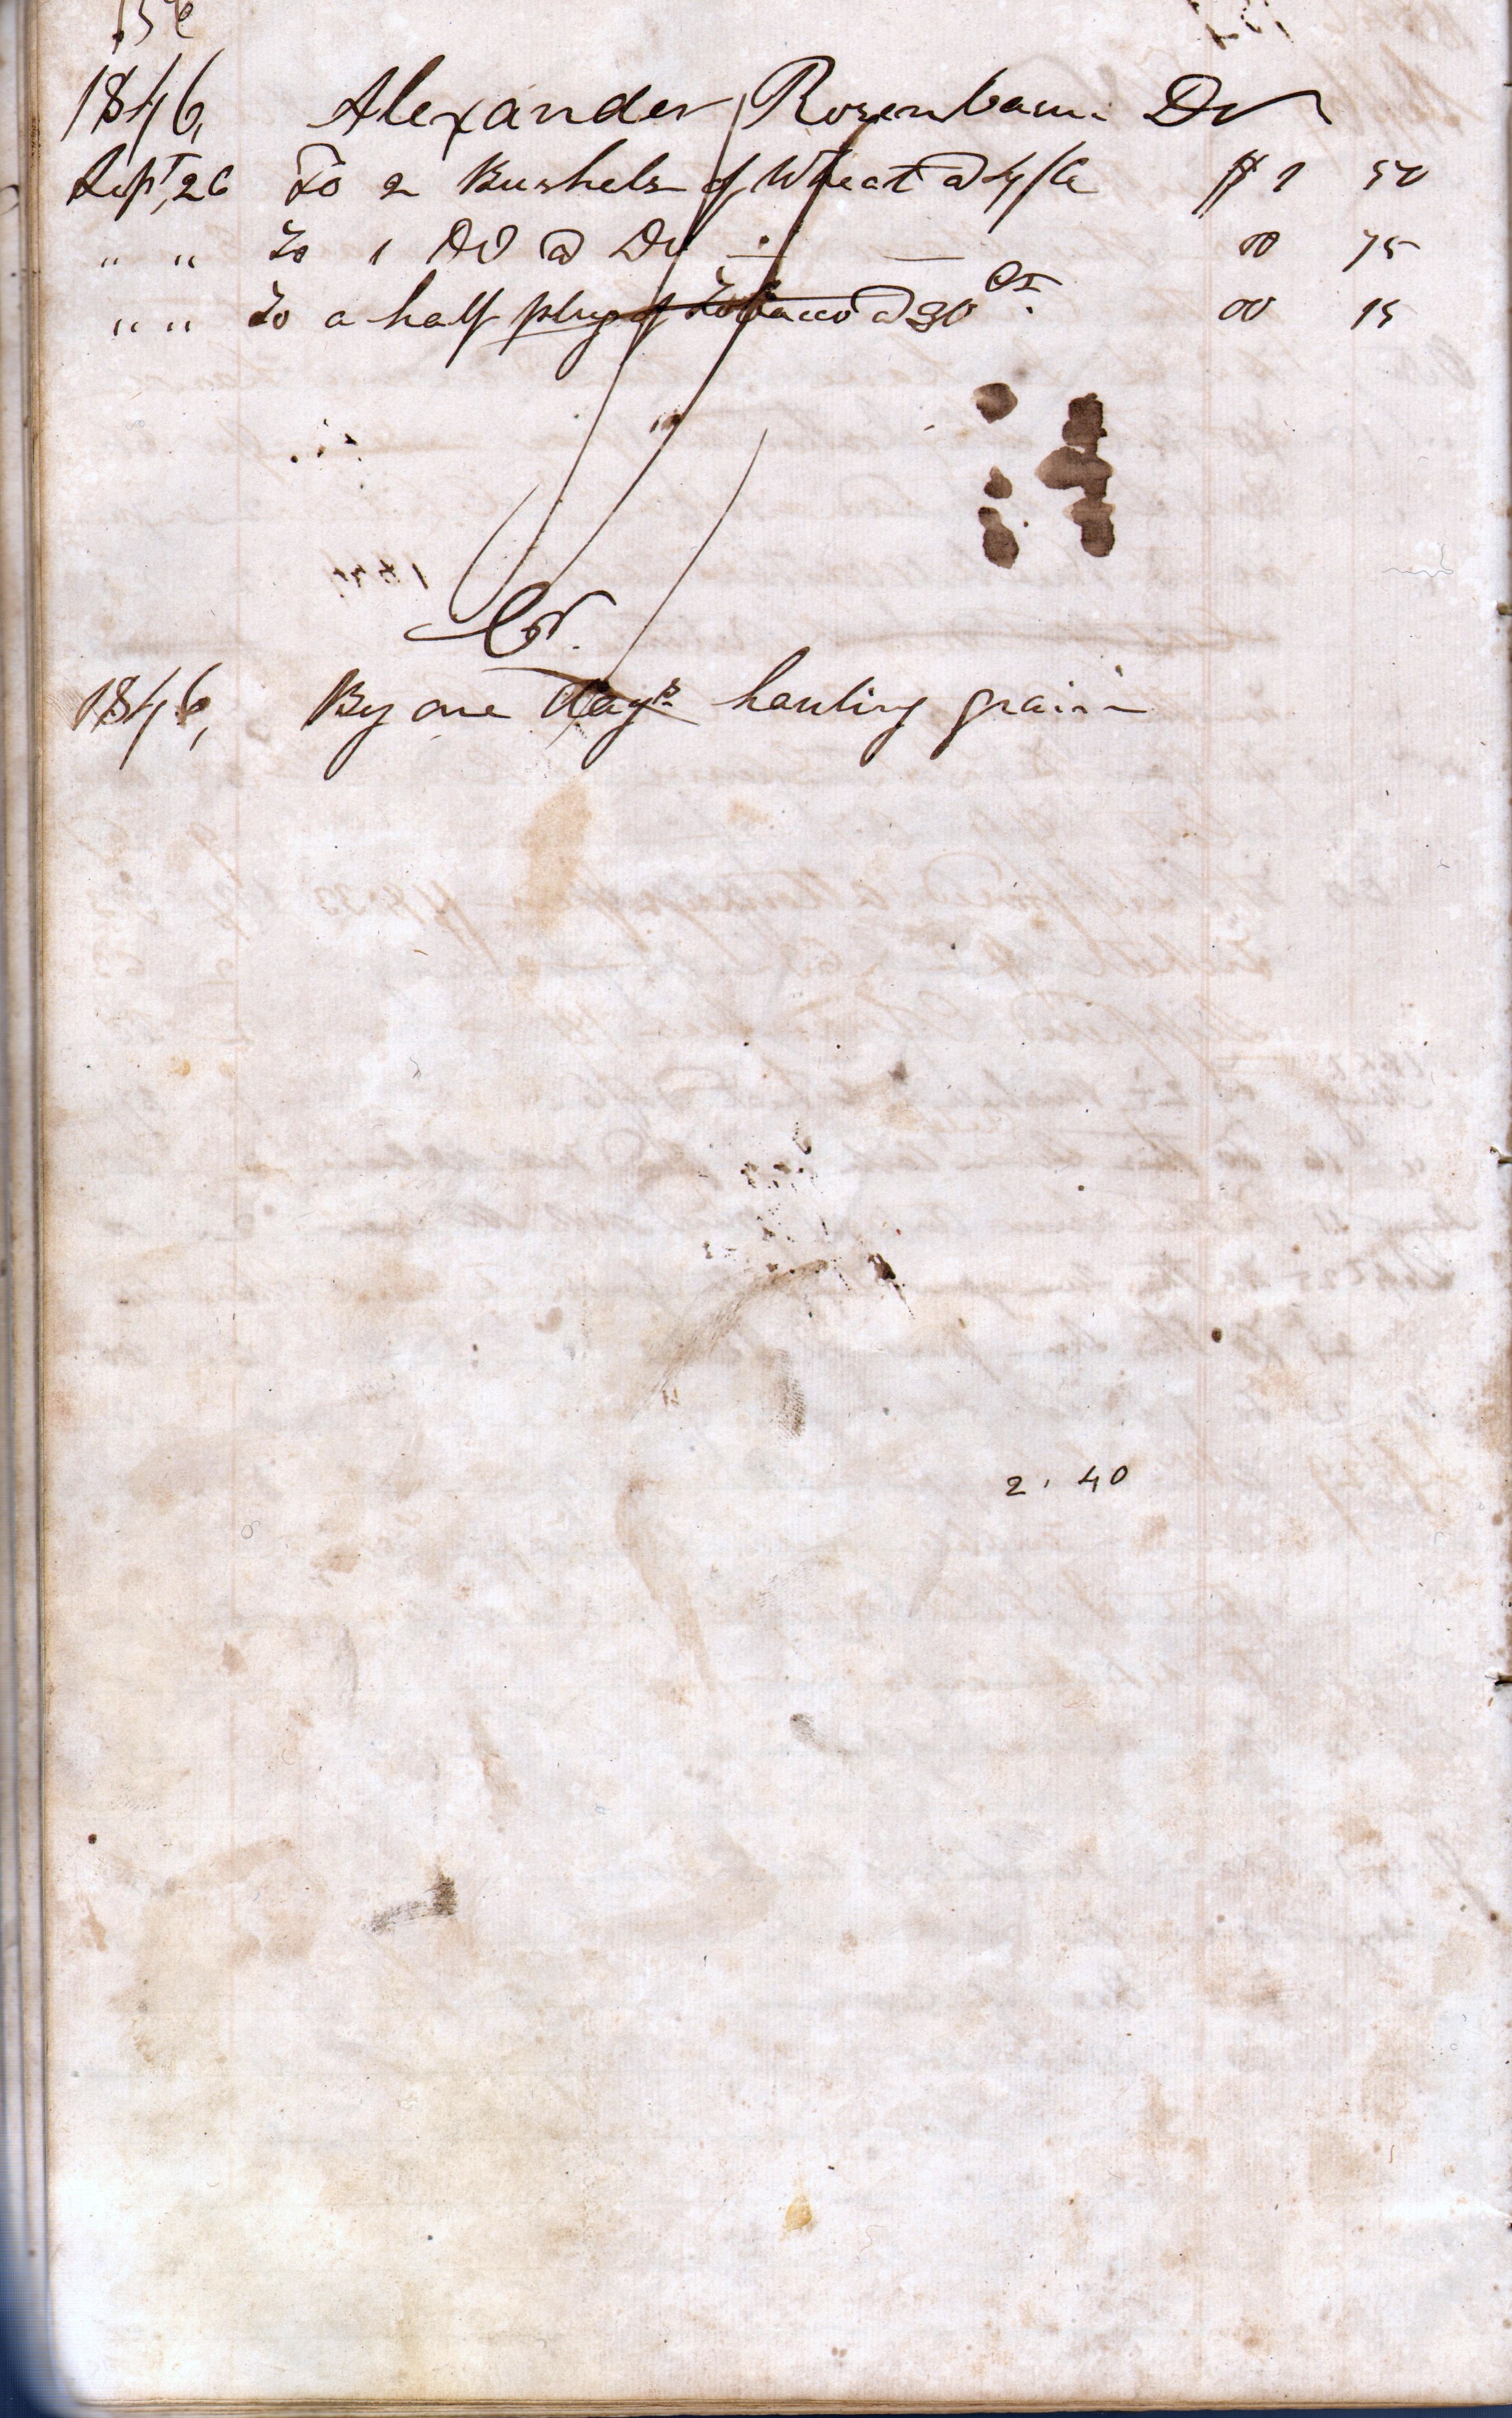 1846, Alexander Rosenbaum Dr
Sept, 26 To 2 Bushels of Wheat @ 4/6 $1 50
" " To 1 DO @ Do 00 75
" " To a half plug of Tobacco @ 30 Ct. 00 15
Cr.
1846, By one days hauling grain
2.40